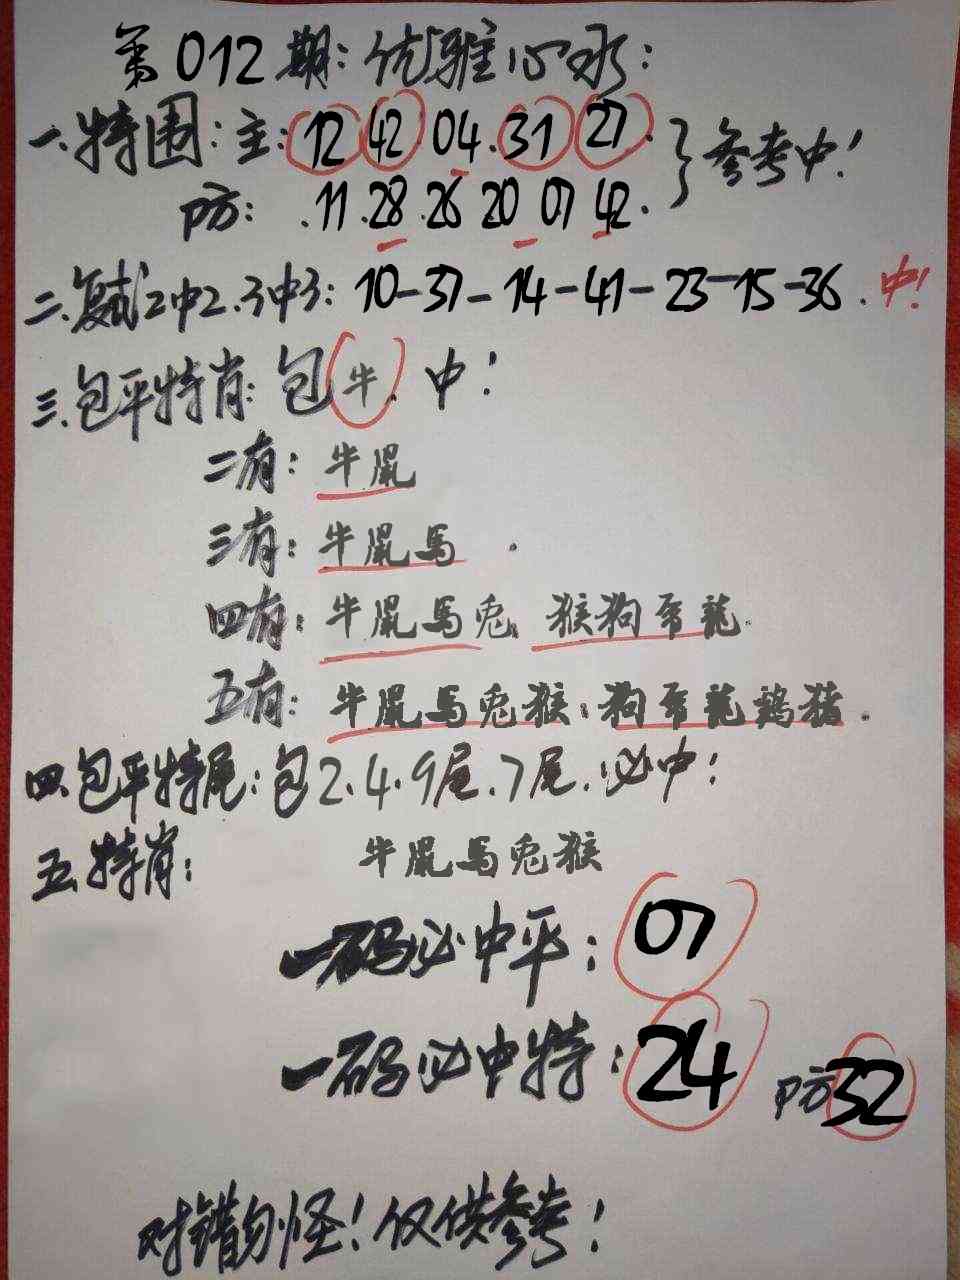 第012期:优雅心水:
一.特围:主:12 42.04.31 27.}参考中!
防:.11.28.26 20 07 42.
二.复式2中2.3中3:10-37-14-41-23-15-36.中!
三.包平特肖:包牛.中!
二有:牛鼠
三有:牛鼠馬.
四有:牛鼠馬兔 猴狗 龍.
五有:牛鼠馬兔猴:狗 龍鷄猪.
四.包平特尾:包2.4.9尾.7尾.必中!
五.特肖:牛鼠馬兔猴
一码必中平:07
一码必中特:24 防32
对错勿怪!仅供参考!